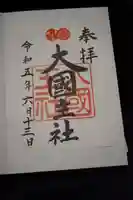 奉拝
大國主社
令和五年六月十三日